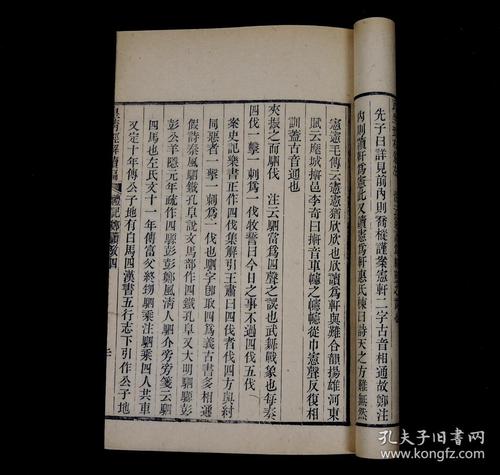 先子曰詳見前內則喬樅謹案憲軒二字古音相通故鄭注
內則讀軒為憲此又讀憲為軒惠氏棟曰詩天之方難無然
憲憲毛傳云憲憲猶欣欣也欣讀為軒與難合韻揚雄河東
賦云麾城摲邑李奇曰摲音車幰之幰幰從巾憲聲反復相
訓蓋古音通也
夾振之而駟伐 注云駟當為四聲之誤也武舞戰象也每奏
四伐一擊一刺為一伐牧誓曰今日之事不過四伐五伐
案史記樂書正作四伐集解引王肅曰四伐者伐四方與紂
同惡者一擊一刺為一伐也駟字即取四為義古書多相通
假詩秦風駟鐵孔阜說文馬部作四鐵孔阜又大明駟騵彭
彭公羊隱元年疏作四騵彭彭鄭風清人駟介旁旁箋云駟
四馬也左氏文十一年傳富父終甥駟乘注駟乘四人共車
又定十年傳公子地有白馬四漢書五行志下引作公子地
皇清經解續編
禮記鄭讀攷四
孔夫子旧书网
www.kongfz.com